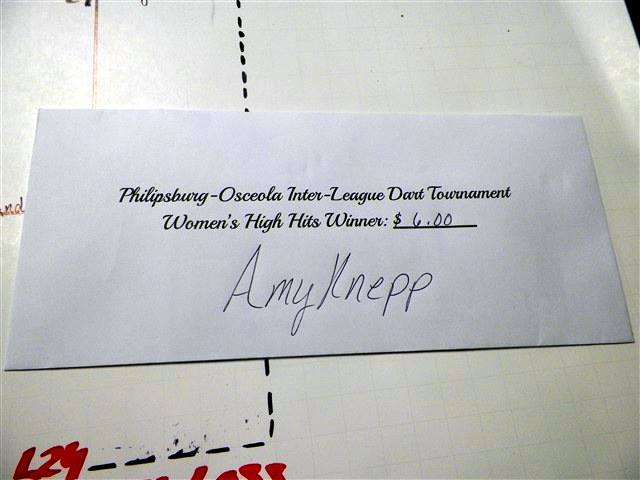 and
Philipsburg-Osceola Inter-League Dart Tournament
Women's High Hits Winner: $ 6.00
Amy Knepp
L29